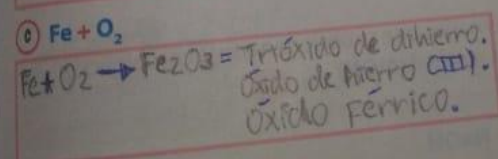 c Fe + O₂
Fe + O₂ → Fe2O3 = Trióxido de dihierro.
Óxido de hierro (III).
Óxido Férrico.